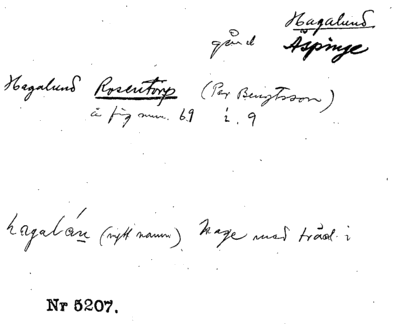 Hagalund
gård Äspinge
Hagalund Rosentorp (Per Bengtsson)
å fig num. 69 i. 9
hagalón (nytt namn) Hage med träd i
Nr 5207.